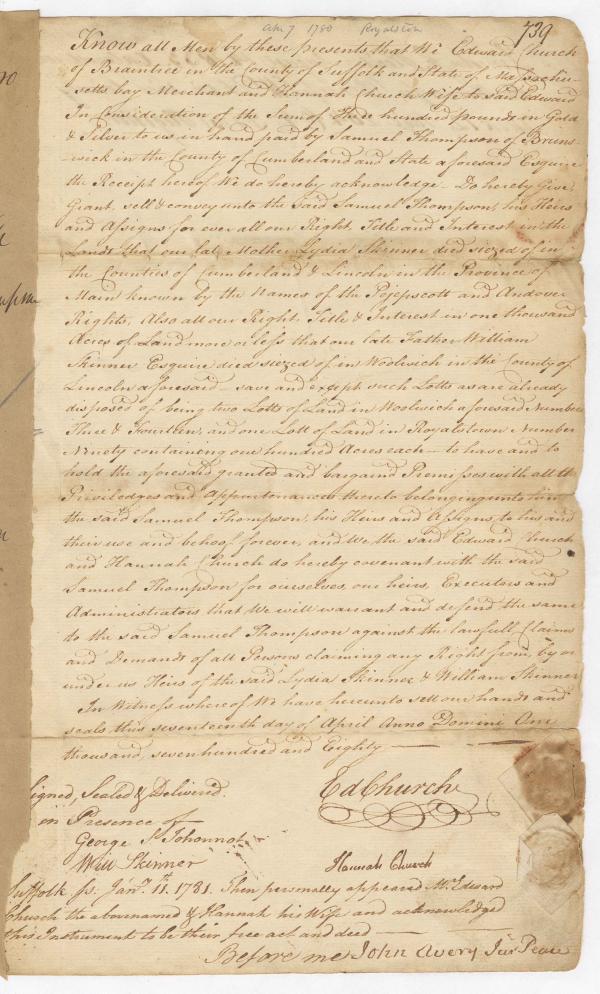 Apr 7 1780 Royalston
739
Know all Men by these presents that We Edward Church
of Braintree in the County of Suffolk and State of Massachu-
setts bay Merchant and Hannah Church Wife to said Edward
In Consideration of the Sum of Three hundred pounds in Gold
& Silver to us in hand paid by Samuel Thompson of Bruns
-wick in the County of Cumberland and State aforesaid Esquire
the Receipt hereof We do hereby acknowledge - Do hereby Give,
Grant, sell & convey unto the said Samuel Thompson, his Heirs
and Assigns for ever all our Right, Title and Interest in the
Lands that our late Mother Lydia Skinner died siezed of in
the Counties of Cumberland & Lincoln in the Province of
Main known by the Names of the Pejepscott and Andover
Rights, Also all our Right, Title & Interest in one thousand
Acres of Land more or less that our late Father William
Skinner Esquire died siezed of in Woolwich in the County of
Lincoln aforesaid - save and except such Lotts as are already
disposed of being two Lotts of Land in Woolwich aforesaid Number
Three & Fourteen, and one Lott of Land in Royalstown Number
Ninety containing one hundred Acres each - to have and to
hold the aforesaid granted and bargaind Premisses with all the
Priviledges and Appurtenances thereto belonging unto him
the said Samuel Thompson, his Heirs and Assigns, to his and
their use and behoof forever, and We the said Edward Church
and Hannah Church do hereby covenant with the said
Samuel Thompson for ourselves, our heirs, Executors and
Administrators that We will warrant and defend the same
to the said Samuel Thompson against the lawfull Claims
and Demands of all Persons claiming any Right from, by or
under us Heirs of the said Lydia Skinner & William Skinner
In Witness whereof We have hereunto sett our hands and
seals this seventeenth day of April Anno Domini One
thousand, seven hundred and Eighty —
Signed, Sealed & Delivered
in Presence of
Ed Church
George S Johonnot
Will Skinner
Hannah Church
Suffolk ss. Jany. 11th. 1781. Then personally appeared Mr. Edward
Church the abovenamed & Hannah his Wife and acknowledged
this Instrument to be their free act and deed —
Before me John Avery Jus Peace